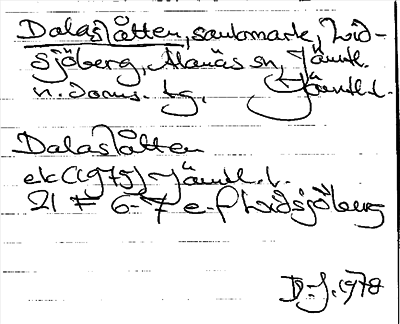 Dalaslåtten, saulomark, Lid-
sjöberg, Alanäs sn, Jämtl.
n. doms. tg, Jämtl. l.
Dalaslåtten
ek (1975) Jämtl. l.
21 F 6-7 e-f Lidsjöberg
D.J. 1978